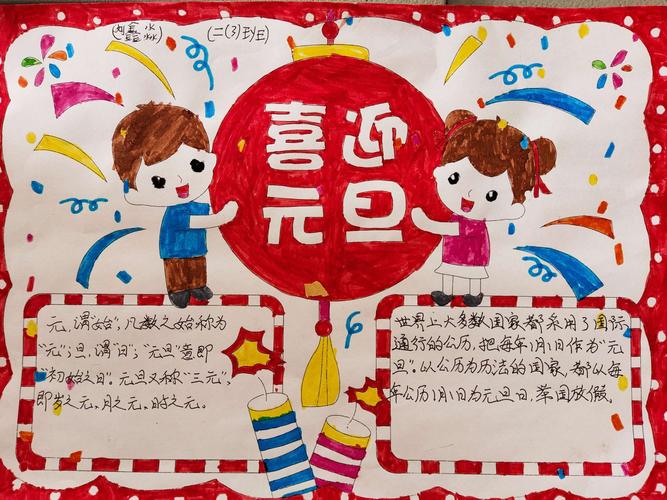 二(3)班
喜迎
元旦
元,谓"始",凡数之始称为
"元";旦,谓"日";"元旦"意即
"初始之日"。元旦又称"三元",
即岁之元,月之元,时之元。
世界上大多数国家都采用了国际
通行的公历,把每年1月1日作为"元
旦"。以公历为历法的国家,都以每
年公历1月1日为元旦日,举国放假。